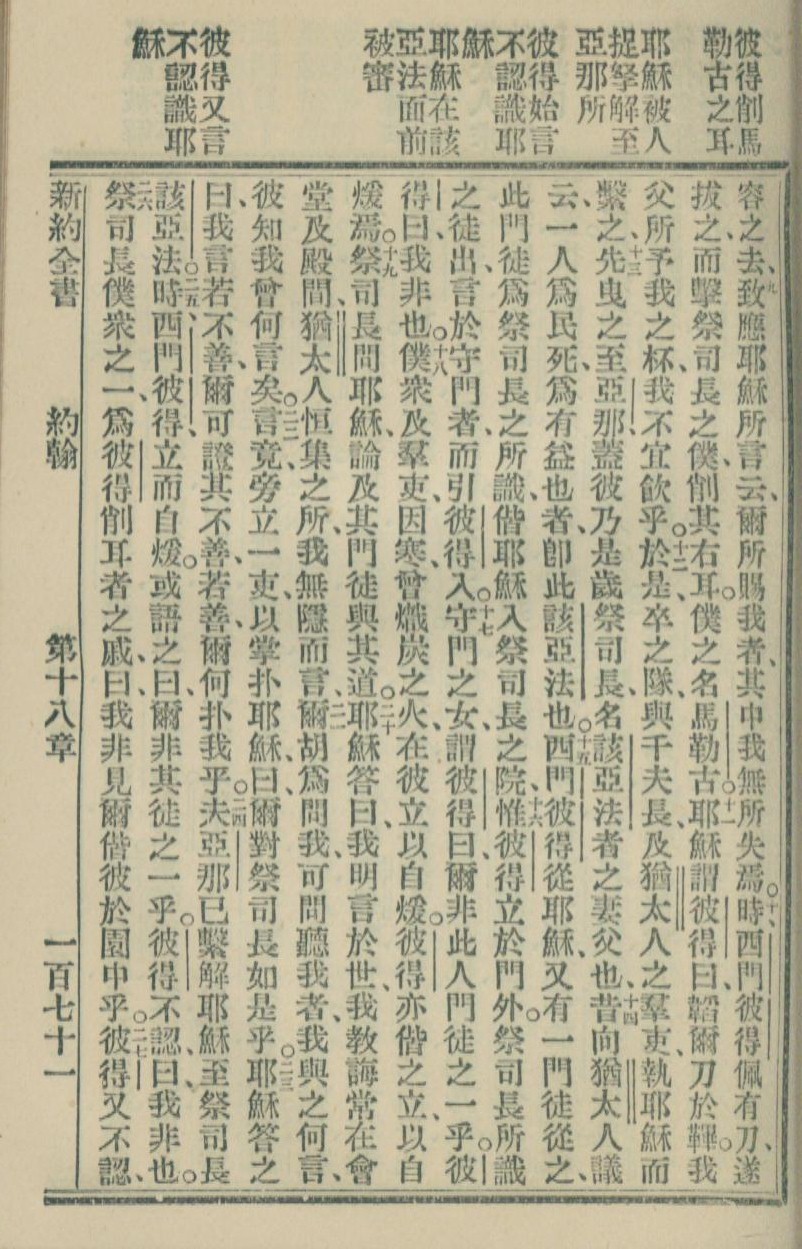 彼得削馬
勒古之耳
耶穌被人
捉拏解至
亞那所
彼得始言
不認識耶
穌
耶穌在該
亞法面前
被審
彼得又言
不認識耶
穌
容之去、九致應耶穌所言云、爾所賜我者、其中我無所失焉。十時西門彼得佩有刀、遂
拔之、而擊祭司長之僕、削其右耳。僕之名馬勒古。十一耶穌謂彼得曰、韜爾刀於鞾。我
父所予我之杯、我不宜飲乎。十二於是、卒之隊、與千夫長、及猶太人之羣吏、執耶穌而
繫之、十三先曳之至亞那、蓋彼乃是歲祭司長、名該亞法者之妻父也、十四昔向猶太人議
云、一人爲民死、爲有益也者、卽此該亞法也。十五西門彼得從耶穌、又有一門徒從之、
此門徒爲祭司長之所識、偕耶穌入祭司長之院、十六惟彼得立於門外。祭司長所識
之徒出、言於守門者、而引彼得入。十七守門之女、謂彼得曰、爾非此人門徒之一乎。彼
得曰、我非也。十八僕衆及羣吏、因寒、曾熾炭之火、在彼立以自煖。彼得亦偕之立、以自
煖焉。十九祭司長問耶穌、論及其門徒與其道。二十耶穌答曰、我明言於世、我教誨常在會
堂及殿間、猶太人恒集之所、我無隱而言、二一爾胡爲問我、可問聽我者、我與之何言、
彼知我曾何言矣。二二言竟、旁立一吏、以掌扑耶穌、曰、爾對祭司長如是乎。二三耶穌答之
曰、我言若不善、爾可證其不善、若善、爾何扑我乎。二四夫亞那已繫解耶穌至祭司長
該亞法。二五時西門彼得、立而自煖。或語之曰、爾非其徒之一乎。彼得不認、曰、我非也。
二六祭司長僕衆之一、爲彼得削耳者之戚、曰、我非見爾偕彼於園中乎。二七彼得又不認、
新約全書　約翰　第十八章　一百七十一